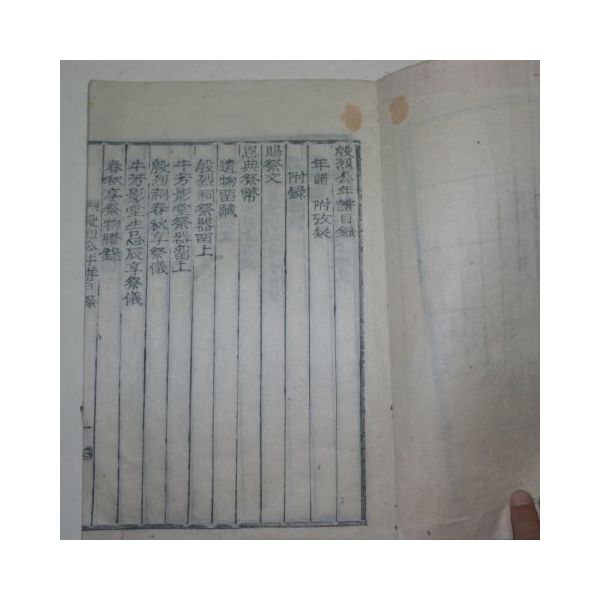 殷烈公年譜目錄
年譜 附攷疑
附錄
賜祭文
恩典祭幣
遺物留藏
殷烈祠祭器留上
牛芳影堂祭器留上
殷烈祠春秋享祭儀
牛芳影堂生忌辰享祭儀
春秋享祭物謄錄
殷烈公年譜目錄
一